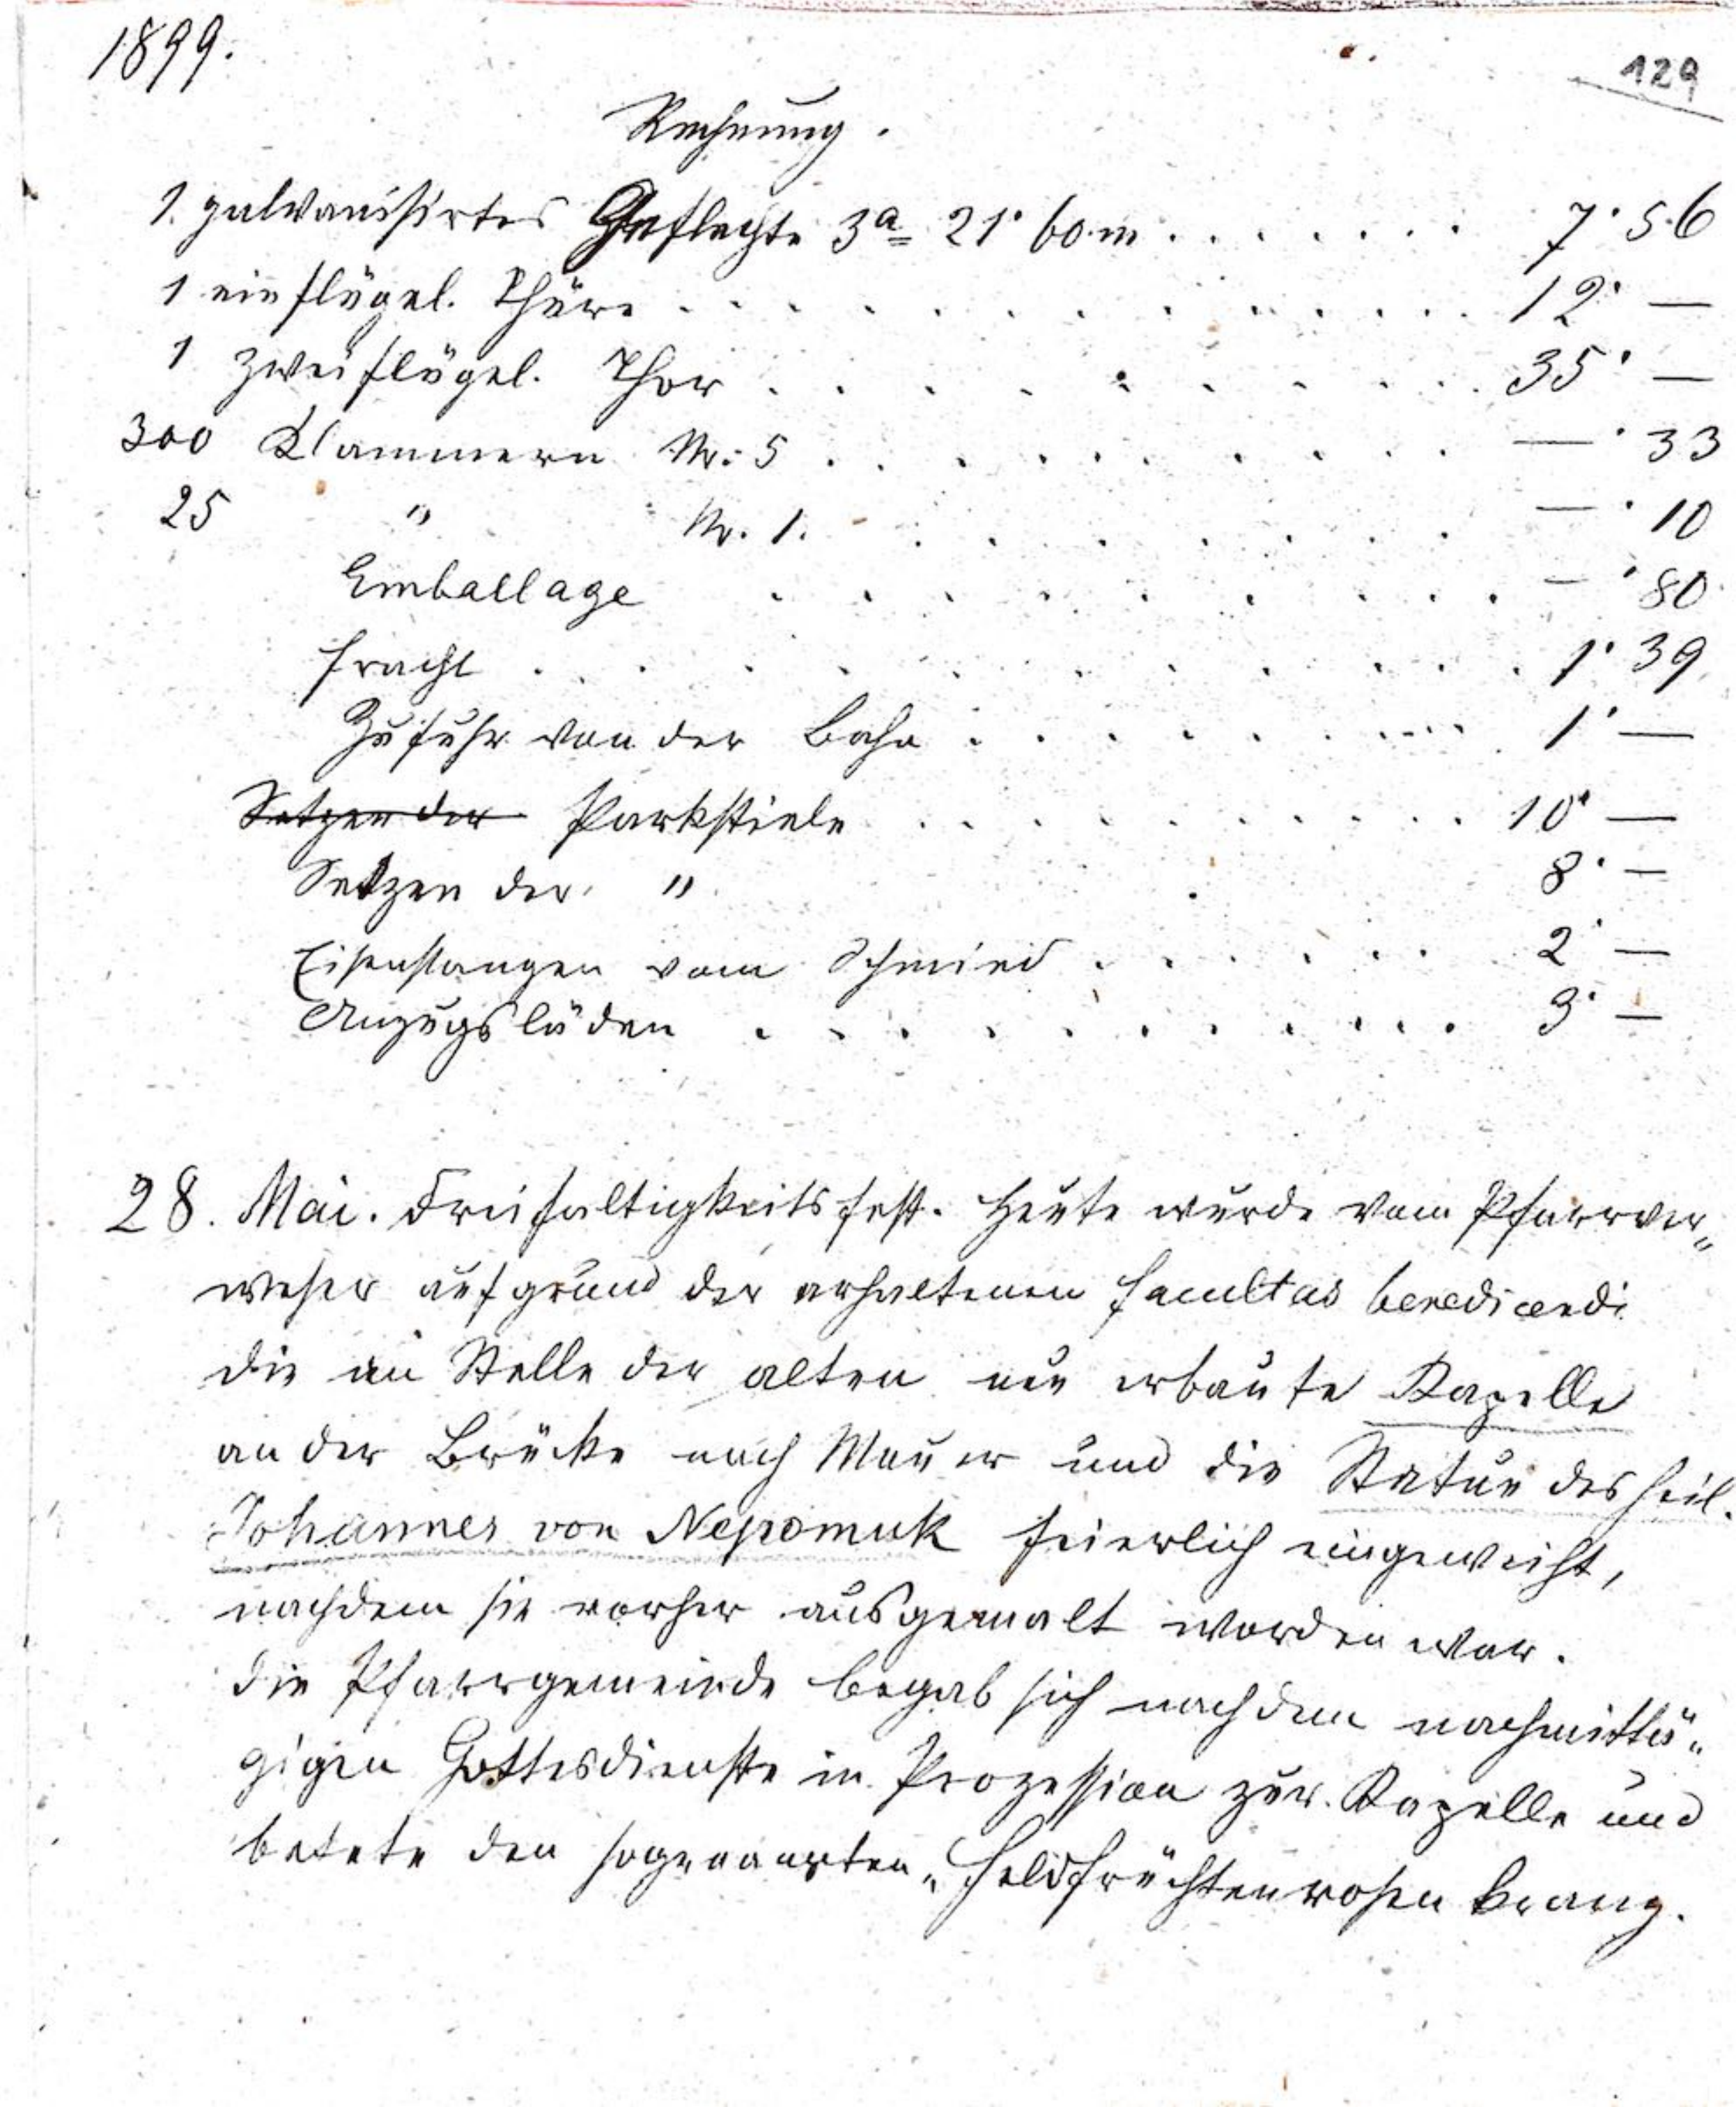 1899.
129
Rechnung.
1. galvanisirtes Geflechte 3a 21·60 m . . . . . . . 7·56
1 einflügel. Thüre . . . . . . . . . . . 12·—
1 zweiflügel. Thor . . . . . . . . . . 35·—
300 Klammern Nr. 5 . . . . . . . . . —·33
25 " Nr. 1. . . . . . . . . —·10
Emballage . . . . . . . . . . —·80
Fracht . . . . . . . . . . . . 1·39
Zufuhr von der Bahn . . . . . . . . . 1·—
Setzen der Parkstiele . . . . . . . . . . 10·—
Setzen der " . 8·—
Eisenstangen vom Schmied . . . . . . 2·—
Anzugsläden . . . . . . . . . . . 3·—
28. Mai. Dreifaltigkeitsfest. Heute wurde vom Pfarrver„
weser aufgrund der erhaltenen facultas benedicendi
die an Stelle der alten neu erbaute Kapelle
an der Brücke nach Mauer und die Statue des heil.
Johannes von Nepomuk feierlich eingeweiht,
nachdem sie vorher ausgemalt worden war.
Die Pfarrgemeinde begab sich nach dem nachmittä„
gigen Gottesdienste in Prozession zur Kapelle und
betete den sogenannten „Feldfrüchtenrosenkranz.